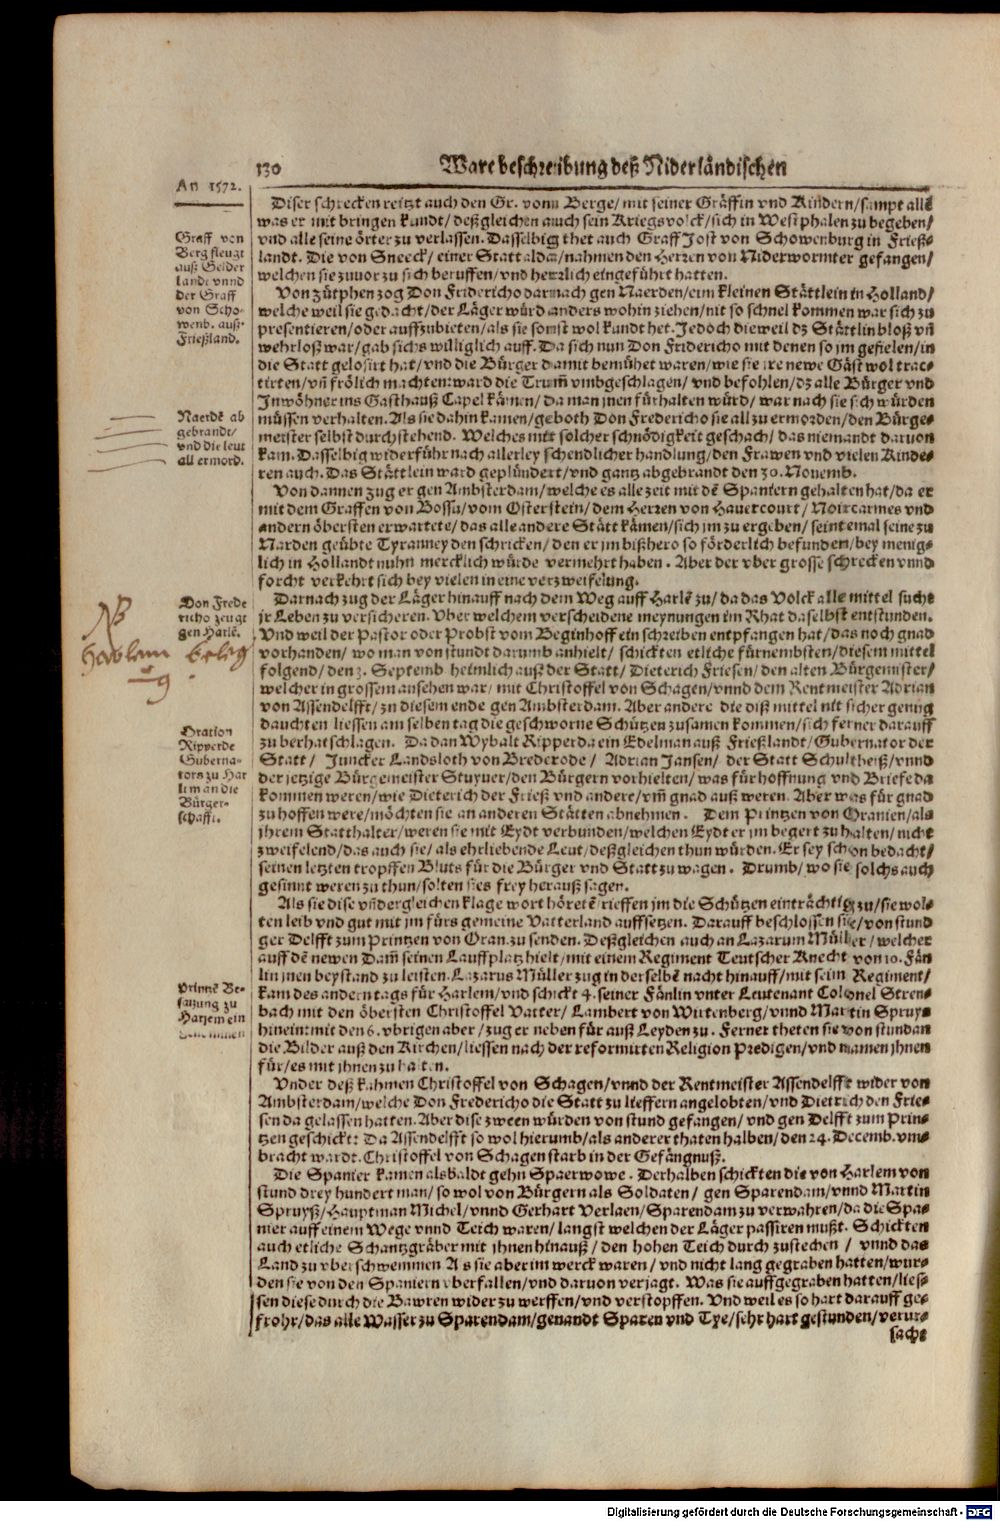 130
Ware beschreibung deß Niderländischen
An 1572.
Diser schrecken reitzt auch den Gr. vonn Berge/ mit seiner Gräffin vnd Kindern/ sampt allē
was er mit bringen kundt/ deßgleichen auch sein Kriegsvolck/ sich in Westphalen zu begeben/
vnd alle seine örter zu verlassen. Dasselbig thet auch Graff Jost von Schowenburg in Frieß-
landt. Die von Sneeck/ einer Statt alda/ nahmen den Herren von Niderwormter gefangen/
welchen sie zuvor zu sich beruffen/ vnd herrlich eingeführt hatten.
Graff von
Berg fleugt
auß Gelder
landt vnnd
der Graff
von Scho-
wenb. auß
Frießland.
Von Zütphen zog Don Friderich darnach gen Naerden/ eim kleinen Stättlein in Holland/
welche weil sie gedacht/ der Läger würd anders wohin ziehen/ nit so schnel kommen war sich zu
presentieren/ oder auffzubieten/ als sie sonst wol kundt het. Jedoch dieweil dz Stättlin bloß vñ
wehrloß war/ gab sichs williglich auff. Da sich nun Don Friderico mit denen so jm gefielen/ in
die Statt gelosirt hat/ vnd die Bürger damit bemühet waren/ wie sie ire newe Gäst wol trac-
tirten/ vñ frölich machten: ward die Trum̃ vmbgeschlagen/ vnd befohlen/ dz alle Bürger vnd
Inwöhner ins Gasthauß Capel kämen/ da man jnen fürhalten würd/ war nach sie sich würden
müssen verhalten. Als sie dahin kamen/ geboth Don Fredericho sie all zu ermorden/ den Bürge-
meister selbst durchstehend. Welches mit solcher schnödigkeit geschach/ das niemandt daruon
kam. Dasselbig widerführ nach allerley schendlicher handlung/ den Frawen vnd vielen Kinde-
ren auch. Das Stättlein ward geplündert/ vnd gantz abgebrandt den 30. Nouemb.
Naerdē ab
gebrandt/
vnd die leut
all ermord.
Von dannen zug er gen Ambsterdam/ welche es alle zeit mit dē Spaniern gehalten hat/ da er
mit dem Graffen von Bossu/ vom Osterstein/ dem Herren von Hauercourt/ Noircarmes vnd
andern öbersten erwartete/ das alle andere Stätt kämen/ sich jm zu ergeben/ seintemal seine zu
Narden geübte Tyranney den schricken/ den er jm bißhero so förderlich befunden/ bey menig-
lich in Hollandt nuhn mercklich würde vermehrt haben. Aber der vber grosse schrecken vnnd
forcht verkehrt sich bey vielen in eine verzweifelung.
Darnach zug der Läger hinauff nach dem Weg auff Harlē zu/ da das Volck alle mittel sucht
jr Leben zu versicheren. Vber welchem verscheidene meynungen im Rhat daselbst entstunden.
Vnd weil der Pastor oder Probst vom Beginhoff ein schreiben entpfangen hat/ das noch gnad
vorhanden/ wo man von stundt darumb anhielt/ schickten etliche fürnembsten/ diesem mittel
folgend/ den 3. Septemb heimlich auß der Statt/ Dieterich Friesen/ den alten Bürgemister/
welcher in grossem ansehen war/ mit Christoffel von Schagen/ vnnd dem Rentmeister Adrian
von Assendelfft/ zu diesem ende gen Ambsterdam. Aber andere die diß mittel nit sicher genug
dauchten liessen am selben tag die geschworne Schützen zusamen kommen/ sich ferner darauff
zu berhatschlagen. Da dan Wybalt Ripperda ein Edelman auß Frießlandt/ Gubernator der
Statt/ Juncker Landsloth von Brederode/ Adrian Jansen/ der Statt Schultheiß/ vnnd
der jetzige Bürgemeister Stuyuer/ den Bürgern vorhielten/ was für hoffnung vnd Briefe da
kommen weren/ wie Dieterich der Frieß vnd andere/ vm̃ gnad auß weren. Aber was für gnad
zu hoffen were/ möchten sie an anderen Stätten abnehmen. Dem Printzen von Oranien/ als
ihrem Statthalter/ weren sie mit Eydt verbunden/ welchen Eydt er jm begert zu halten/ nicht
zweifelend/ das auch sie/ als ehrliebende Leut/ deßgleichen thun würden. Er sey schon bedacht/
seinen letzten tropffen Bluts für die Bürger vnd Statt zu wagen. Drumb/ wo sie solchs auch
gesinnt weren zu thun/ solten sies frey herauß sagen.
Don Frede
richo zeugt
gen Harlē.
NB
Harlem beleg
Oration
Ripperde
Guberna-
tors zu Har
lim an die
Bürger-
schafft.
Als sie dise vñ dergleichen klage wort höretē/ rieffen jm die Schützen einträchtig zu/ sie wol-
ten leib vnd gut mit jm fürs gemeine Vatterland auffsetzen. Darauff beschlossen sie/ von stund
ger Delfft zum Printzen von Oran. zu senden. Deßgleichen auch an Lazarum Müller/ welcher
auff dē newen Dam̃ seinen Lauffplatz hielt/ mit einem Regiment Teutscher Knecht von 10. Fän
lin jnen beystand zu leisten. Lazarus Müller zug in derselbē nacht hinauff/ mit seim Regiment/
kam des andern tags für Harlem/ vnd schickt 4. seiner Fänlin vnter Leutenant Colonel Stren-
bach mit den öbersten Christoffel Vatter/ Lambert von Wirtenberg/ vnnd Martin Spruys
hinein: mit den 6. vbrigen aber/ zug er neben für auß Leyden zu. Ferner theten sie von stundan
die Bilder auß den Kirchen/ liessen nach der reformirten Religion Predigen/ vnd namen jhnen
für/ es mit jhnen zu halten.
Prinnē Be-
satzung zu
Harlem ein
Vnder deß kahmen Christoffel von Schagen/ vnnd der Rentmeister Assendelfft wider von
Ambsterdam/ welche Don Fredericho die Statt zu lieffern angelobten/ vnd Dietrich den Frie-
sen da gelassen hatten. Aber dise zween würden von stund gefangen/ vnd gen Delfft zum Prin-
tzen geschickt: Da Assendelfft so wol hierumb/ als anderer thaten halben/ den 24. Decemb. vm-
bracht wardt. Christoffel von Schagen starb in der Gefängnuß.
Die Spanier kamen alsbaldt gehn Spaerwowe. Derhalben schickten die von Harlem von
stund drey hundert man/ so wol von Bürgern als Soldaten/ gen Sparendam/ vnnd Martin
Spruyß/ Hauptman Michel/ vnnd Gerhart Verlaen/ Sparendam zu verwahren/ da die Spa-
nier auff einem Wege vnnd Teich waren/ langst welchen der Läger passiren mußt. Schickten
auch etliche Schantzgräber mit jhnen hinauß/ den hohen Teich durch zustechen/ vnnd das
Land zu vberschwemmen. Als sie aber im werck waren/ vnd nicht lang gegraben hatten/ wur-
den sie von den Spaniern vberfallen/ vnd daruon verjagt. Was sie auffgegraben hatten/ lies-
sen diese durch die Bawren wider zu werffen/ vnd verstopffen. Vnd weil es so hart darauff ge-
frohr/ das alle Wasser zu Sparendam/ genandt Sparen vnd Tye/ sehr hart gestunden/ verur-
sacht
Digitalisierung gefördert durch die Deutsche Forschungsgemeinschaft - DFG